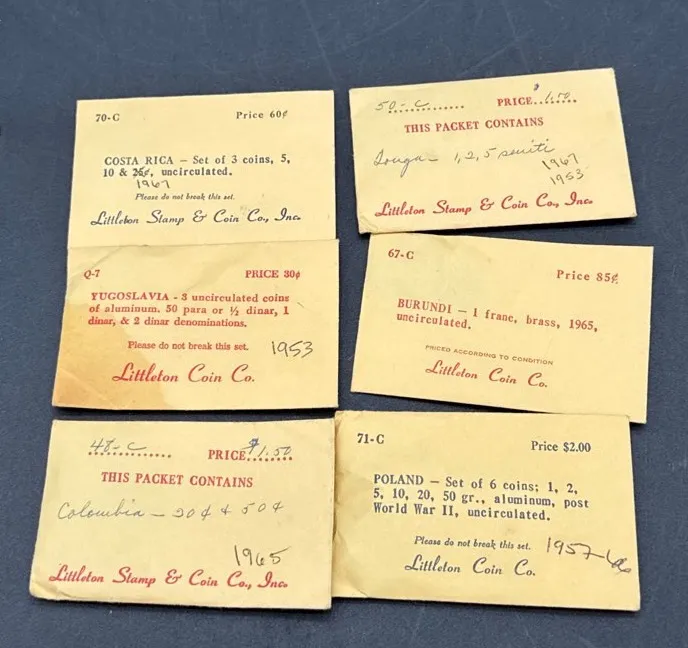 70-C Price 60¢
COSTA RICA — Set of 3 coins, 5,
10 & 25¢, uncirculated.
1967
Please do not break this set.
Littleton Stamp & Coin Co., Inc.
50-C PRICE $1.50
THIS PACKET CONTAINS
Tonga — 1, 2, 5 seniti
1967
1953
Littleton Stamp & Coin Co., Inc.
Q-7 PRICE 30¢
YUGOSLAVIA - 3 uncirculated coins
of aluminum. 50 para or ½ dinar, 1
dinar, & 2 dinar denominations.
Please do not break this set. 1953
Littleton Coin Co.
67-C Price 85¢
BURUNDI — 1 franc, brass, 1965,
uncirculated.
PRICED ACCORDING TO CONDITION
Littleton Coin Co.
48-C PRICE $1.50
THIS PACKET CONTAINS
Colombia — 20¢ & 50¢
1965
Littleton Stamp & Coin Co., Inc.
71-C Price $2.00
POLAND — Set of 6 coins; 1, 2,
5, 10, 20, 50 gr., aluminum, post
World War II, uncirculated.
Please do not break this set. 1957-
Littleton Coin Co.